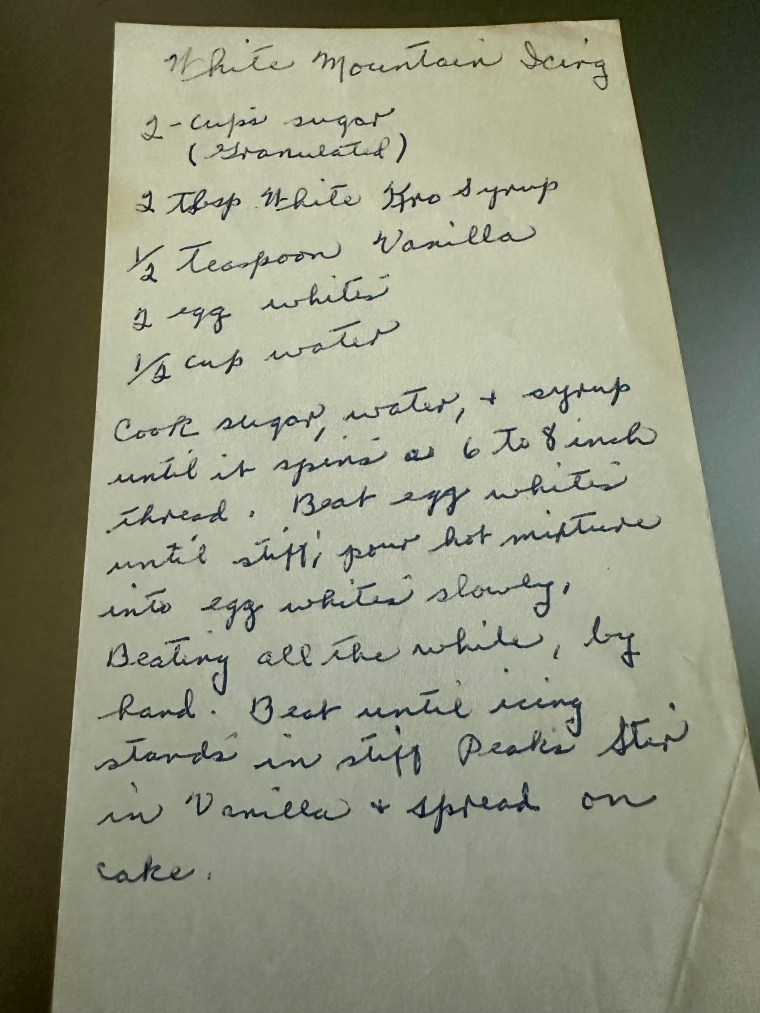 White Mountain Icing
2 - cups sugar
(Granulated)
2 Tbsp White Kro Syrup
1/2 Teaspoon Vanilla
2 egg whites
1/2 cup water
Cook sugar, water, + syrup
until it spins a 6 to 8 inch
thread. Beat egg whites
until stiff; pour hot mixture
into egg whites slowly,
Beating all the while, by
hand. Beat until icing
stands in stiff Peaks Stir
in Vanilla + spread on
cake.